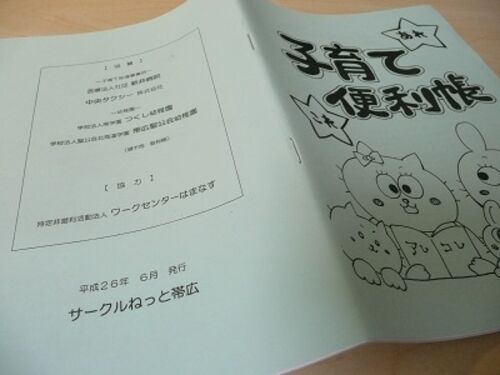 あれ
これ
子育て
便利帳
アレ
コレ
【協賛】
～子育て応援事業所～
医療法人社団 新井病院
中央タクシー 株式会社
～幼稚園～
学校法人帯学園 つくし幼稚園
学校法人聖公会北海道学園 帯広聖公会幼稚園
(順不同 敬称略)
【協力】
特定非営利活動法人 ワークセンターはまなす
平成26年 6月 発行
サークルねっと帯広